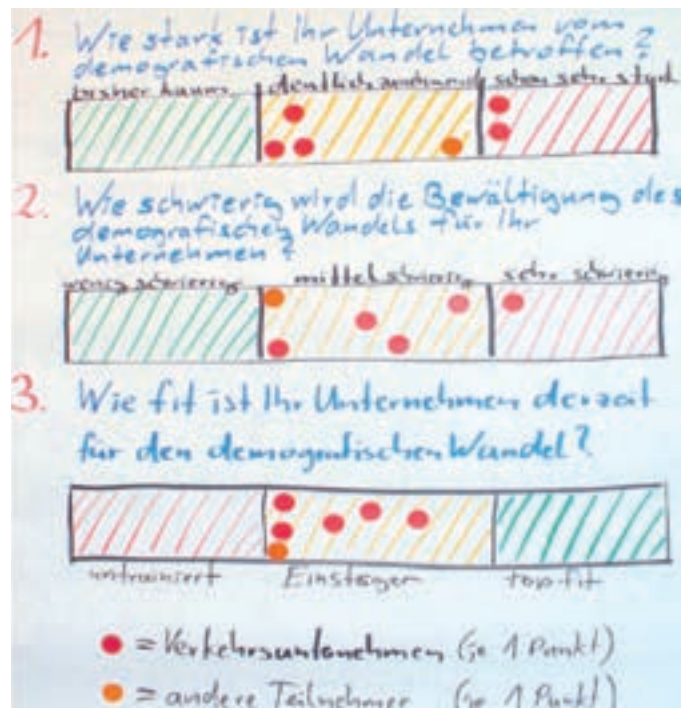 1. Wie stark ist Ihr Unternehmen vom
demografischen Wandel betroffen?
bisher kaum deutlich zunehmend schon sehr stark
2. Wie schwierig wird die Bewältigung des
demografischen Wandels für Ihr
Unternehmen?
wenig schwierig mittel schwierig sehr schwierig
3. Wie fit ist Ihr Unternehmen derzeit
für den demografischen Wandel?
untrainiert Einsteiger top-fit
= Verkehrsunternehmen (je 1 Punkt)
= andere Teilnehmer (je 1 Punkt)